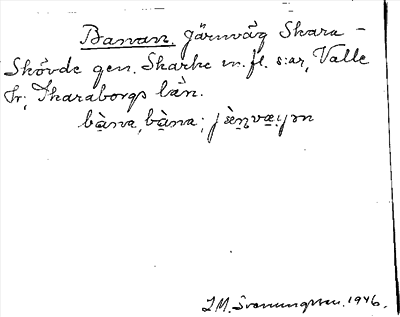 Banan, Järnväg Skara –
Skövde gen. Skarke m. fl. s:ar, Valle
hr; Skaraborgs län.
bàna, bàna; jæ̀ṇvæ:gən
J.M. Svenungsson. 1946.